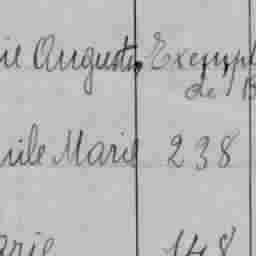 ie Auguste Exempt
de B
uile Marie 238
arie 148